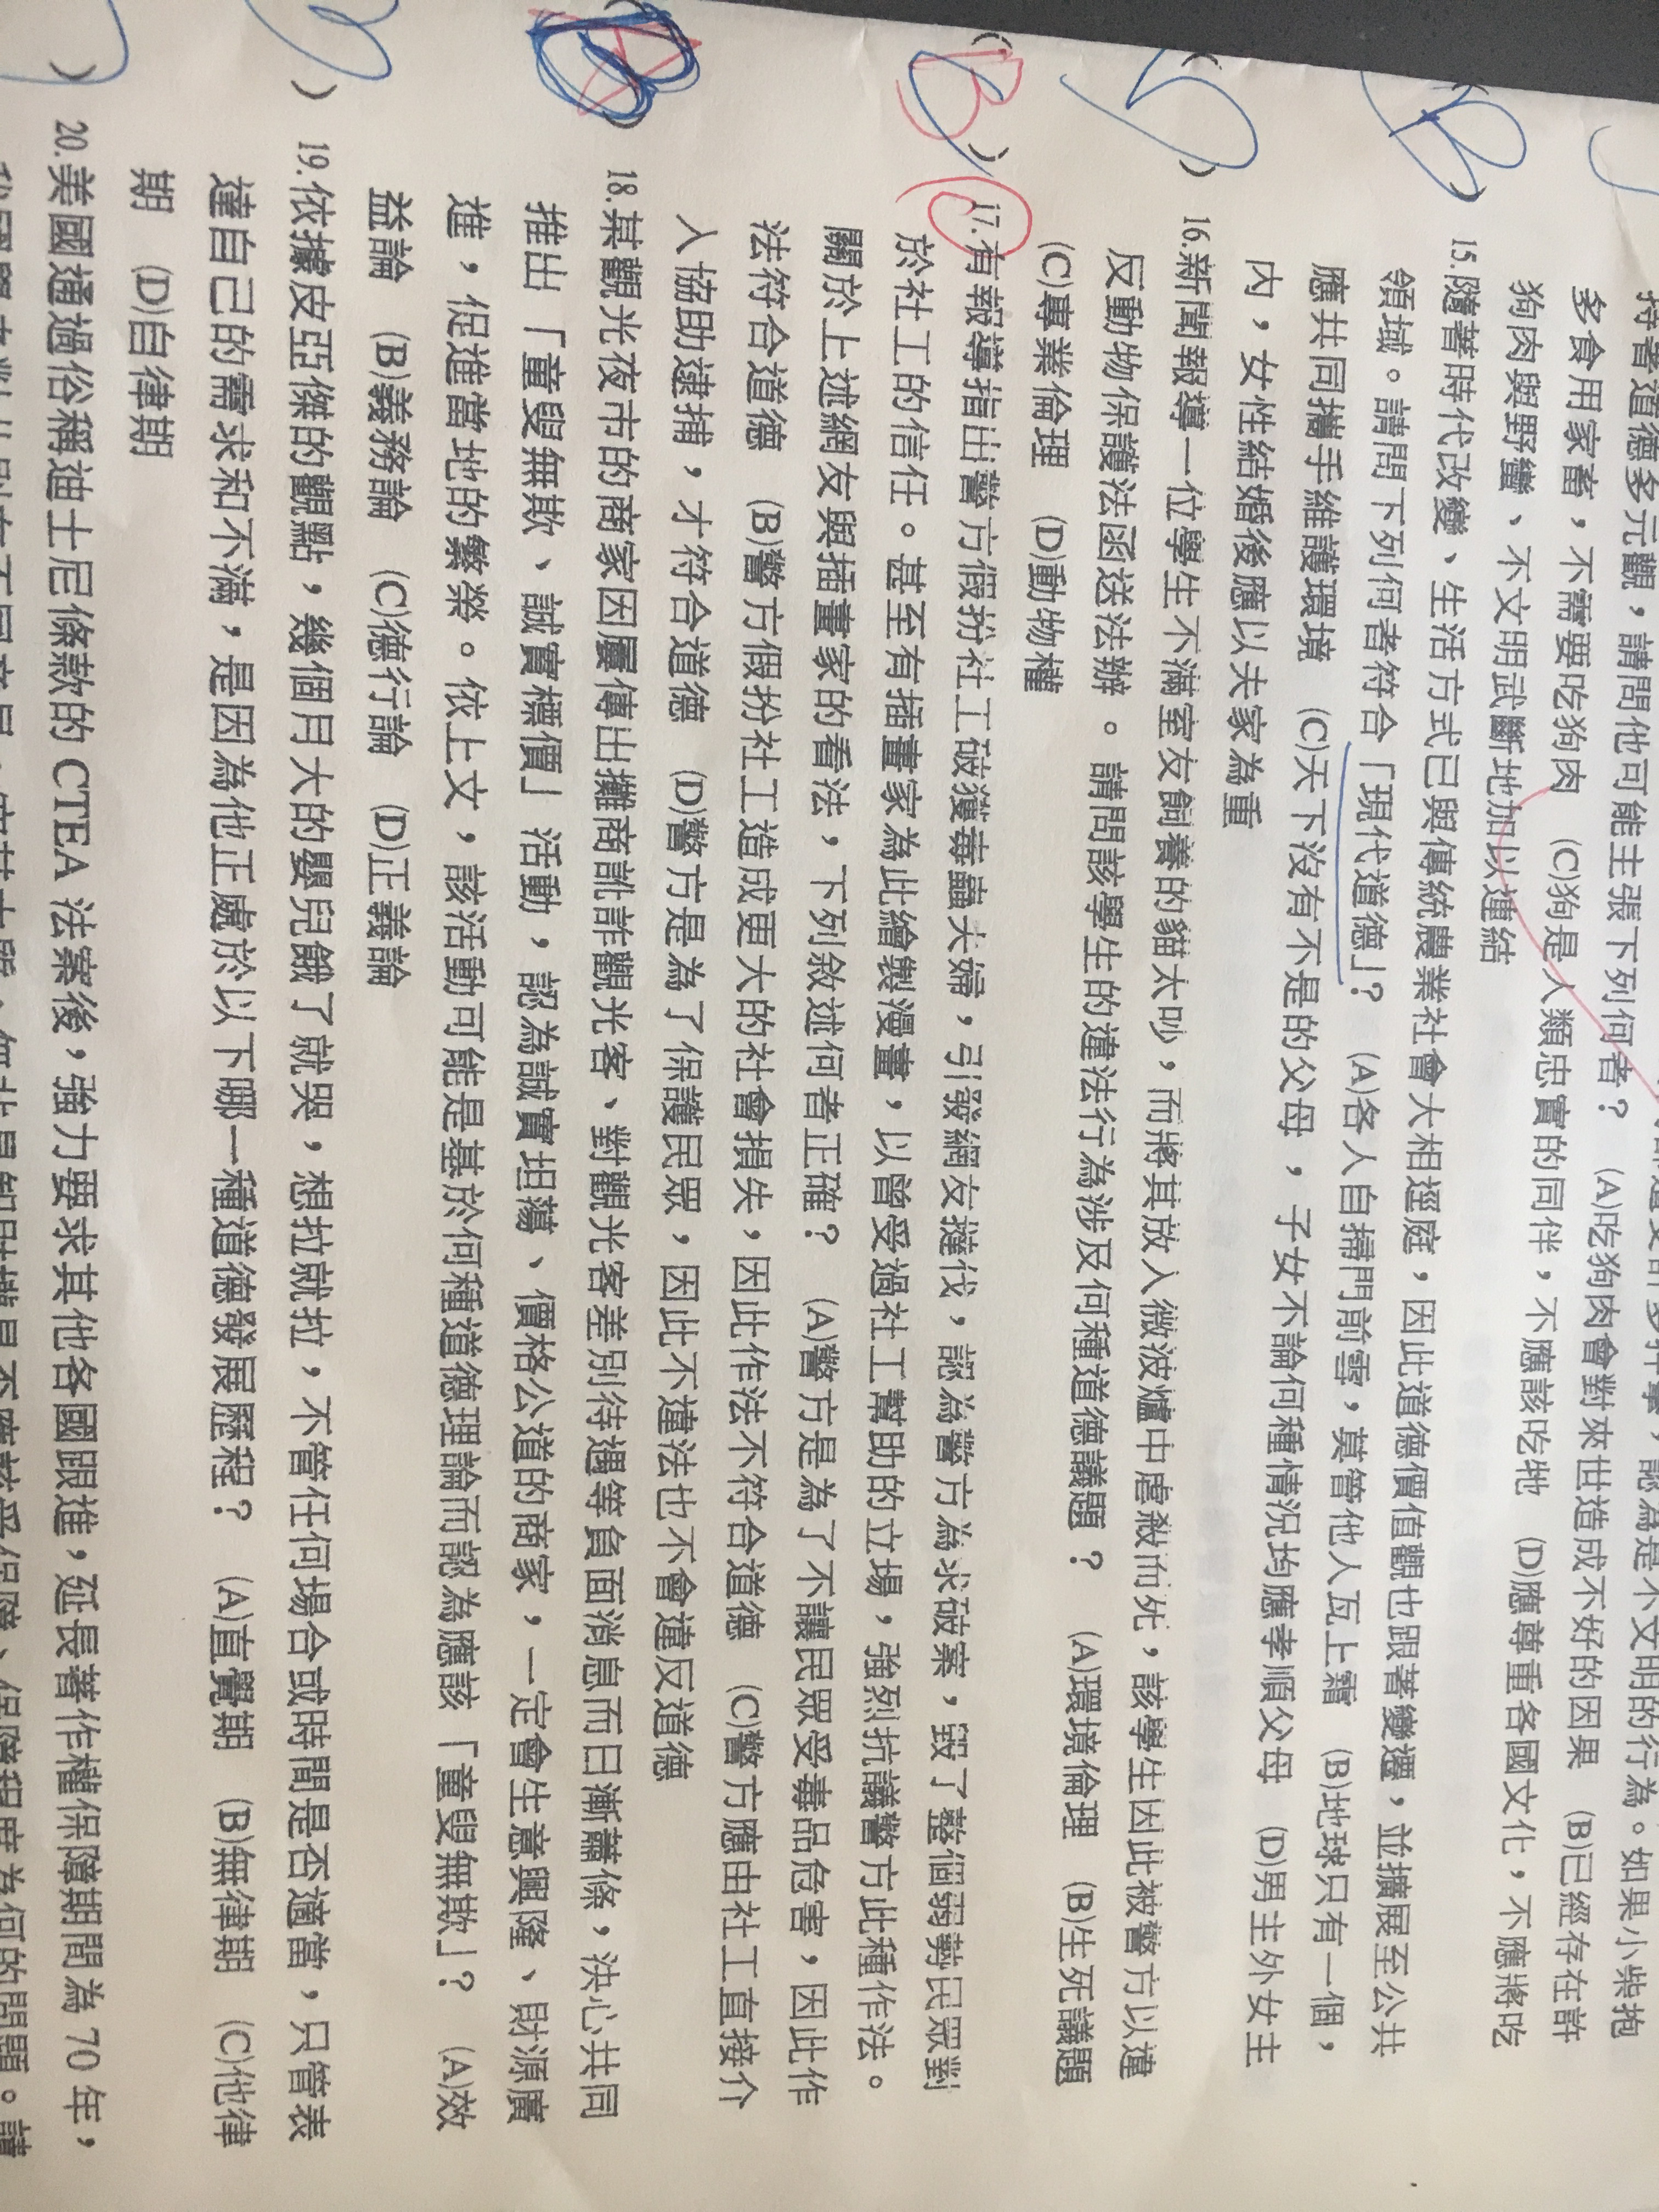 持著道德多元觀，請問他可能主張下列何者？ (A)吃狗肉會對來世造成不好的因果 (B)已經存在許
多食用家畜，不需要吃狗肉 (C)狗是人類忠實的同伴，不應該吃牠 (D)應尊重各國文化，不應將吃
狗肉與野蠻、不文明武斷地加以連結
15.隨著時代改變、生活方式已與傳統農業社會大相逕庭，因此道德價值觀也跟著變遷，並擴展至公共
領域。請問下列何者符合「現代道德」？ (A)各人自掃門前雪，莫管他人瓦上霜 (B)地球只有一個，
應共同攜手維護環境 (C)天下沒有不是的父母，子女不論何種情況均應孝順父母 (D)男主外女主
內，女性結婚後應以夫家為重
B
16.新聞報導一位學生不滿室友飼養的貓太吵，而將其放入微波爐中虐殺而死，該學生因此被警方以違
反動物保護法函送法辦。請問該學生的違法行為涉及何種道德議題？ (A)環境倫理 (B)生死議題
(C)專業倫理 (D)動物權
B
17.有報導指出警方假扮社工破獲毒蟲夫婦，引發網友撻伐，認為警方為求破案，毀了整個弱勢民眾對
於社工的信任。甚至有插畫家為此繪製漫畫，以曾受過社工幫助的立場，強烈抗議警方此種作法。
關於上述網友與插畫家的看法，下列敘述何者正確？ (A)警方是為了不讓民眾受毒品危害，因此作
法符合道德 (B)警方假扮社工造成更大的社會損失，因此作法不符合道德 (C)警方應由社工直接介
入協助逮捕，才符合道德 (D)警方是為了保護民眾，因此不違法也不會違反道德
18.某觀光夜市的商家因屢傳出攤商訛詐觀光客、對觀光客差別待遇等負面消息而日漸蕭條，決心共同
推出「童叟無欺、誠實標價」活動，認為誠實坦蕩、價格公道的商家，一定會生意興隆、財源廣
進，促進當地的繁榮。依上文，該活動可能是基於何種道德理論而認為應該「童叟無欺」？ (A)效
益論 (B)義務論 (C)德行論 (D)正義論
19.依據皮亞傑的觀點，幾個月大的嬰兒餓了就哭，想拉就拉，不管任何場合或時間是否適當，只管表
達自己的需求和不滿，是因為他正處於以下哪一種道德發展歷程？ (A)直覺期 (B)無律期 (C)他律
期 (D)自律期
20.美國通過俗稱迪士尼條款的 CTEA 法案後，強力要求其他各國跟進，延長著作權保障期間為 70 年，